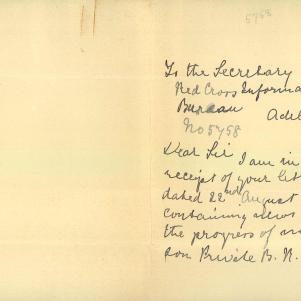 5758
To the Secretary
Red Cross Informa
Bureau Adel
No 5758
Dear Sir
I am in
receipt of your let
dated 22nd August
containing news
the progress of
son Private B. N.